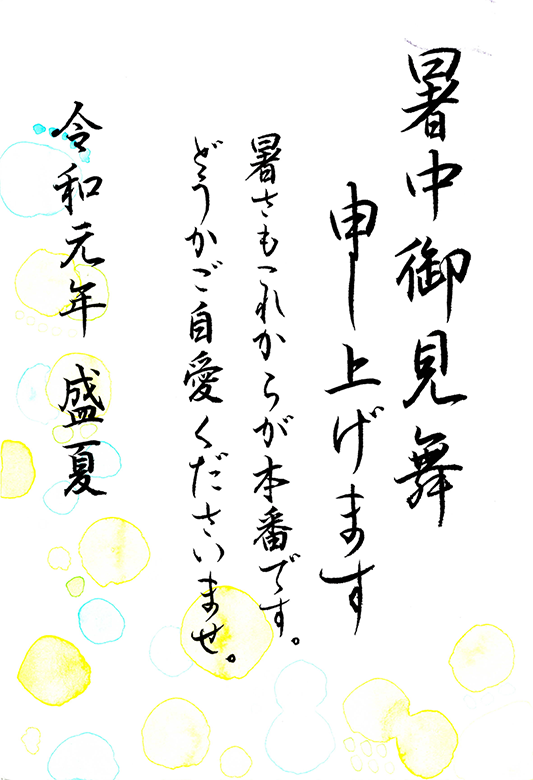 暑中御見舞
申し上げます
暑さもこれからが本番です。
どうかご自愛くださいませ。
令和元年 盛夏